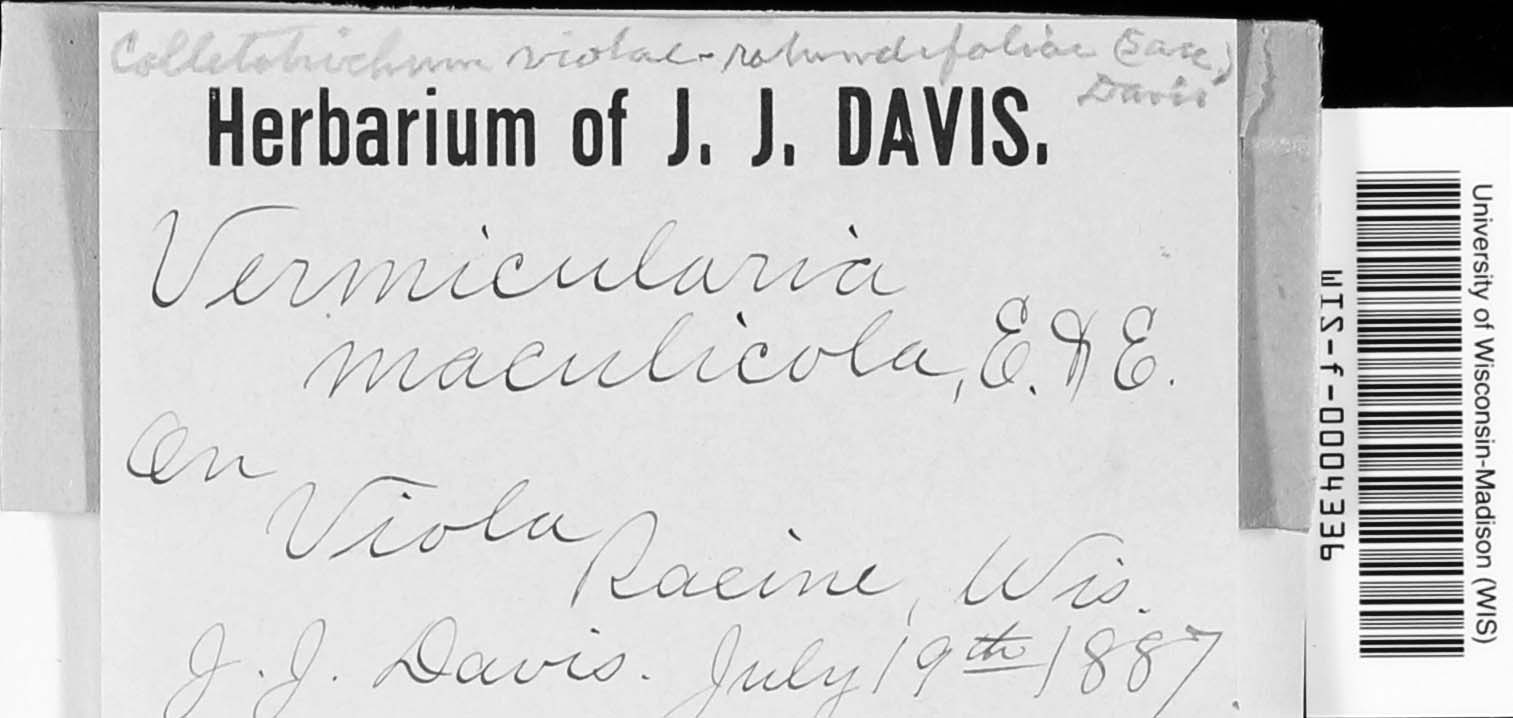 Colletotrichum violae-rotundifoliae (Sacc.)
Davis
Herbarium of J. J. DAVIS.
Vermicularia
maculicola, E. & E.
On
Viola
Racine, Wis.
J. J. Davis. July 19th 1887.
WIS-f-0004336
University of Wisconsin-Madison (WIS)